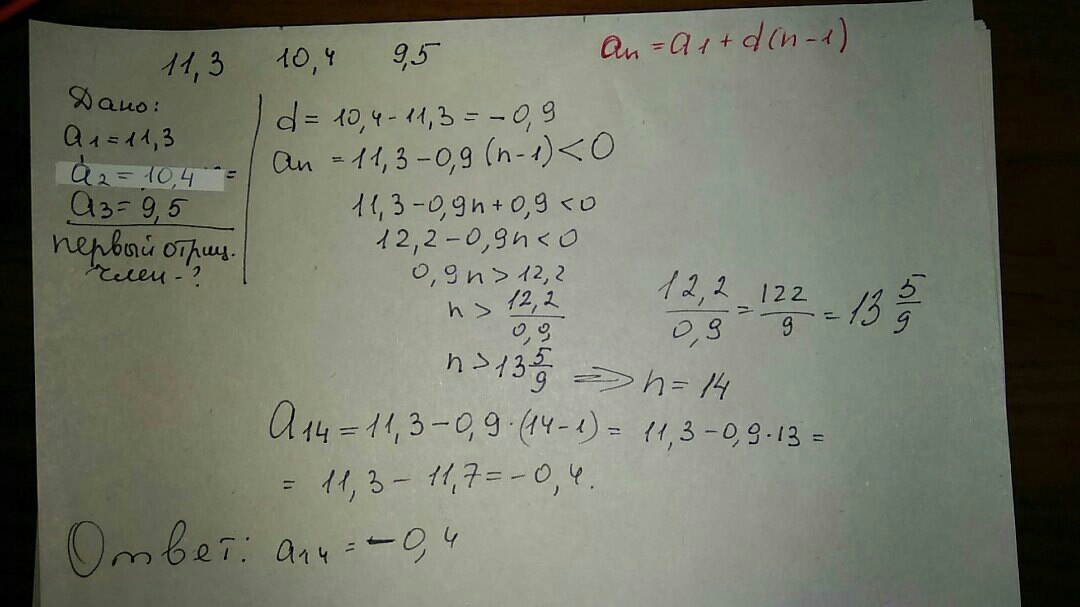 11,3 10,4 9,5
an = a1 + d(n-1)
Дано:
a1 = 11,3
a2 = 10,4 =
a3 = 9,5
первый отриц.
член - ?
d = 10,4 - 11,3 = -0,9
an = 11,3 - 0,9 (n-1) < 0
11,3 - 0,9n + 0,9 < 0
12,2 - 0,9n < 0
0,9n > 12,2
n > 12,2/0,9
12,2/0,9 = 122/9 = 13 5/9
n > 13 5/9 => n = 14
a14 = 11,3 - 0,9 · (14-1) = 11,3 - 0,9 · 13 =
= 11,3 - 11,7 = -0,4.
Ответ: a14 = -0,4